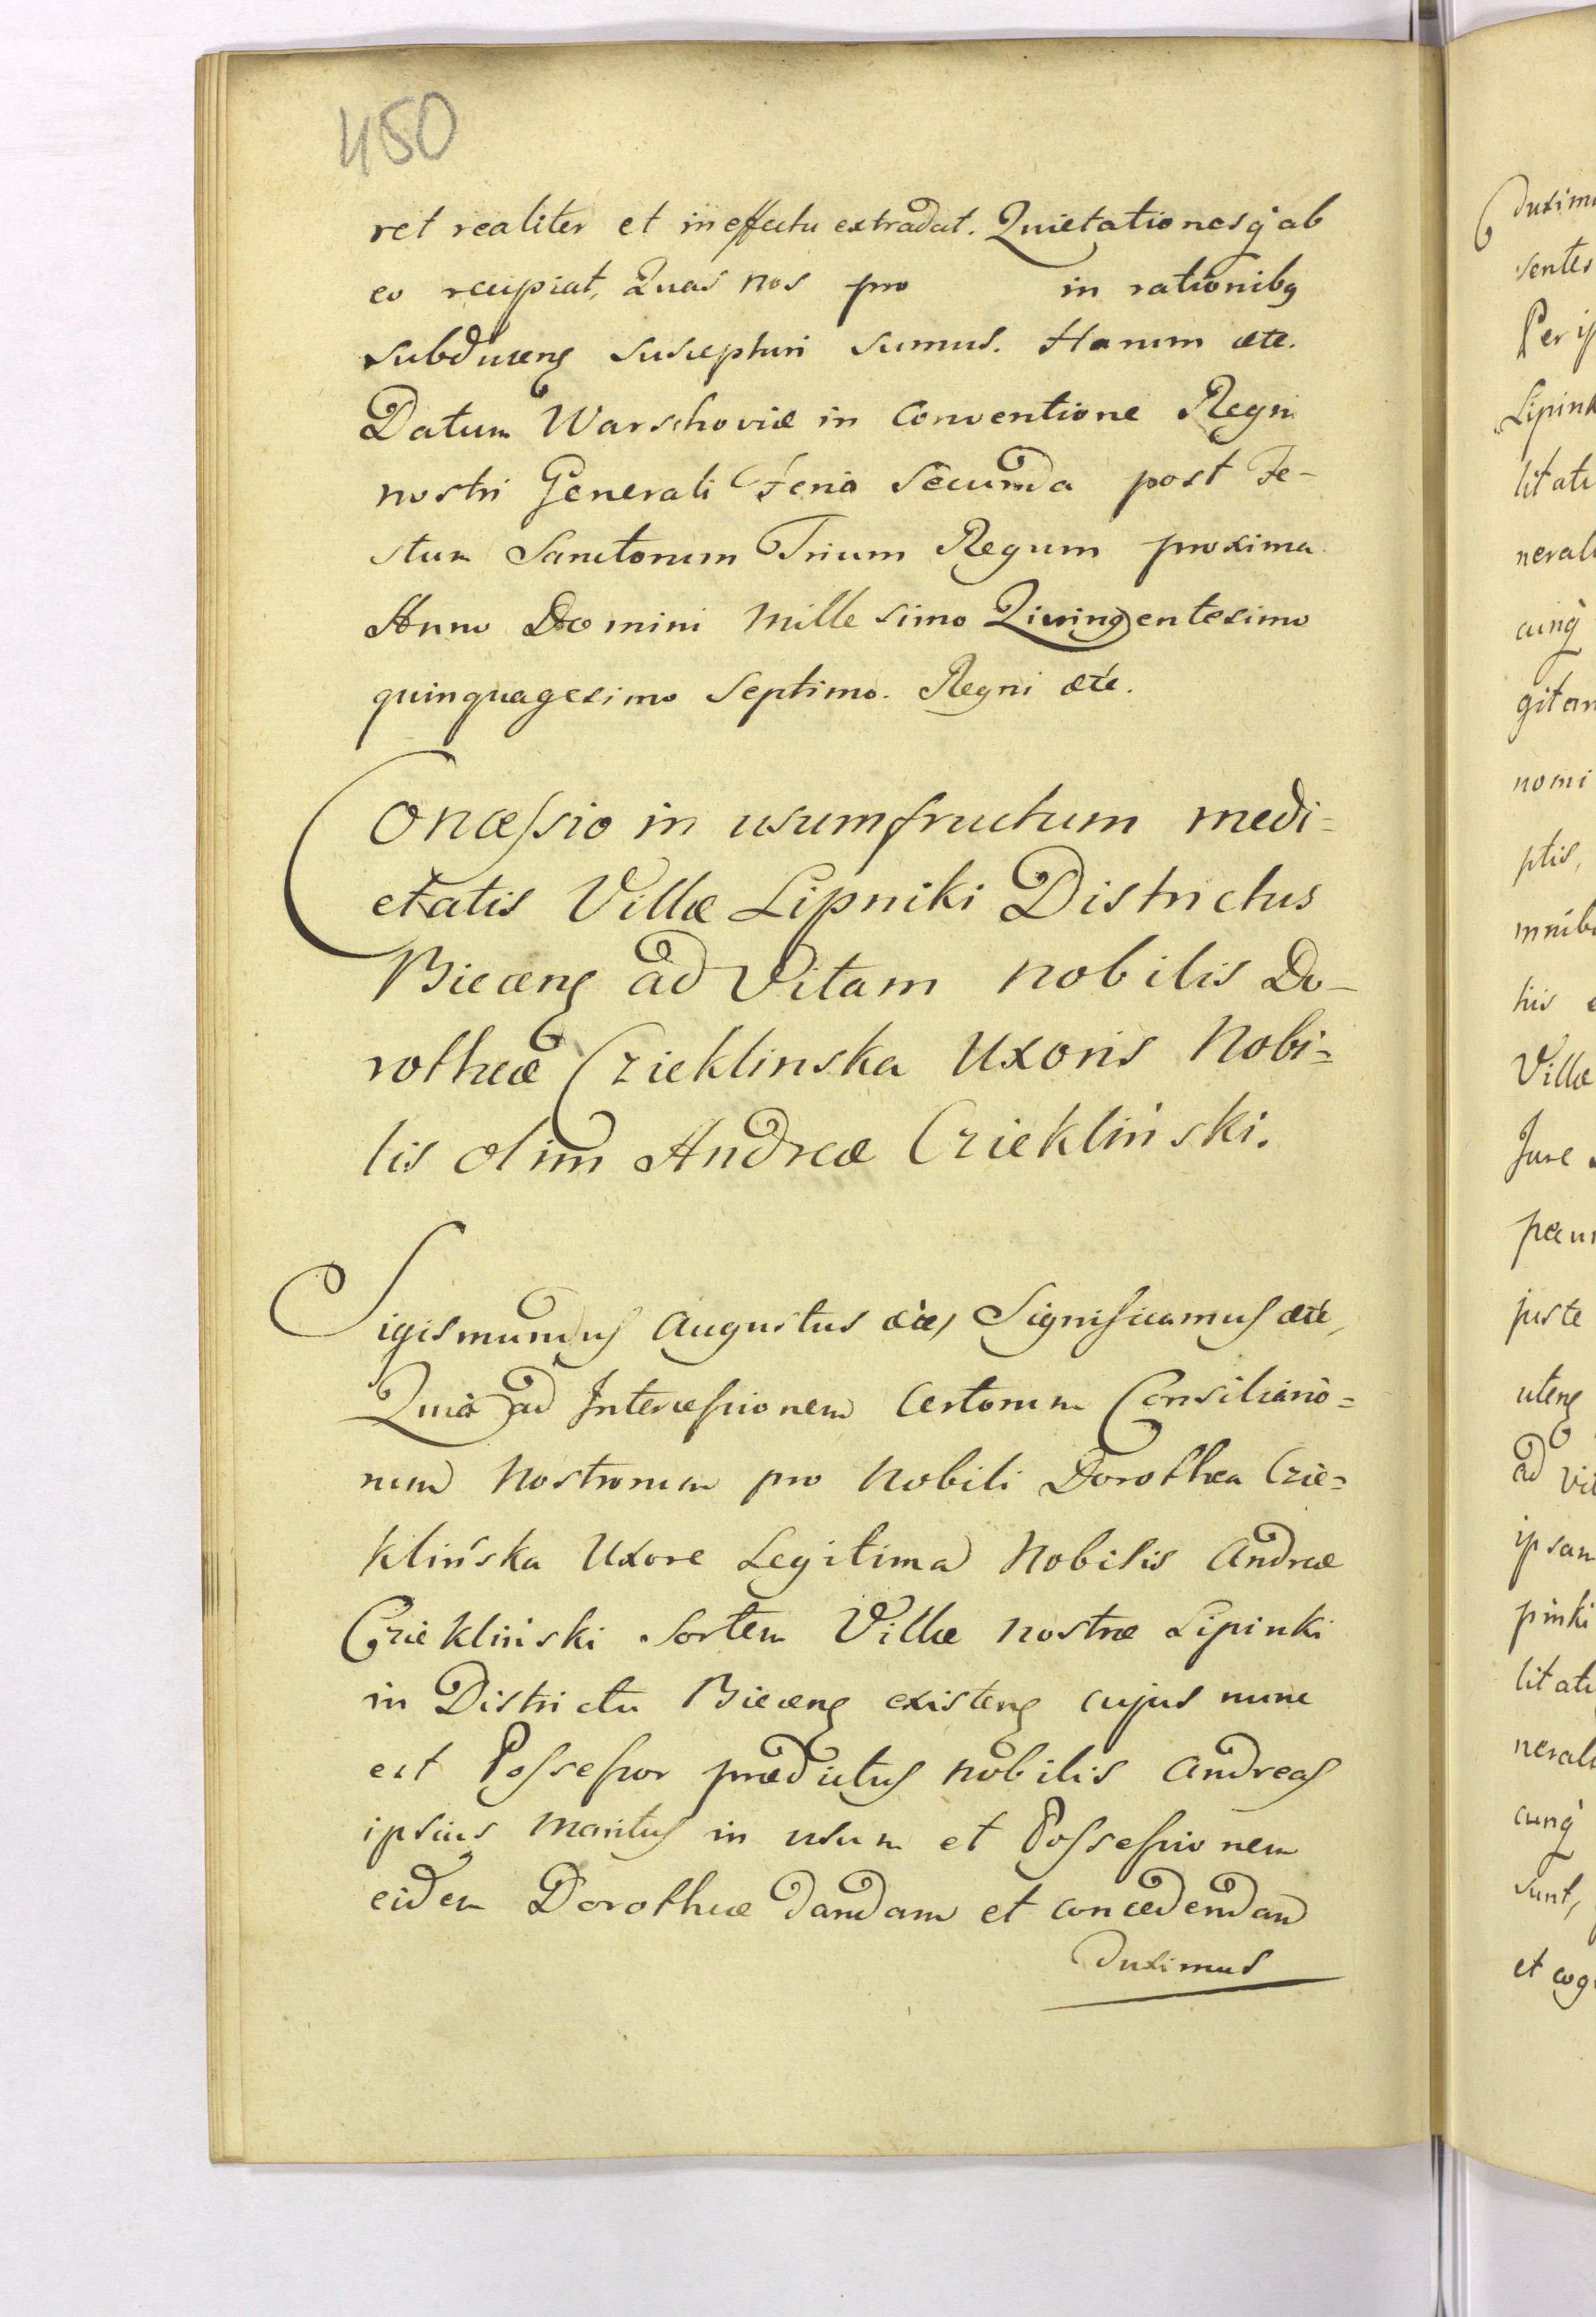 450
ret realiter et in effectu extradat. Quietationesq́ ab
eo recipiat, Quas nos pro in rationibq
subducenɕ suscepturi sumus. Harum etc.
Datum Warschoviæ in Conventione Regni
nostri Generali Feria Secunda post Fe-
stum Sanctorum Trium Regum proxima
Anno Domini Millesimo Quingentesimo
quinquagesimo Septimo. Regni etc.
Concessio in usumfructum medi=
etatis Villæ Lipniki Districtus
Biecenɕ ad Vitam Nobilis Do-
rotheæ Czieklinska Uxoris Nobi=
lis olim Andreæ Cziekliński.
Sigismundus Augustus etc, Significamus etc,
Quia ad Intercessionem Certorum Consiliario=
rum Nostrorum pro Nobili Dorothea Czie=
klińska Uxore Legitima Nobilis Andreæ
Czieklinski Sortem Villæ nostræ Lipinki
in Districtu Biecenɕ existenɕ cujus nunc
est Possessor prædictus nobilis Andreas
ipsius Maritus in usum et Possessionem
eidem Dorotheæ dandam et concedendam
Duximus
duxim
sentes
Per ip
Lipink
litati
nerali
cunq́
gitan
nomi
ptis,
mnibu
his e
Villæ
Jure
pecun
juste
utenɕ
ad vit
ipsam
pinki
litati
nerali
cunq́
sunt,
et cog